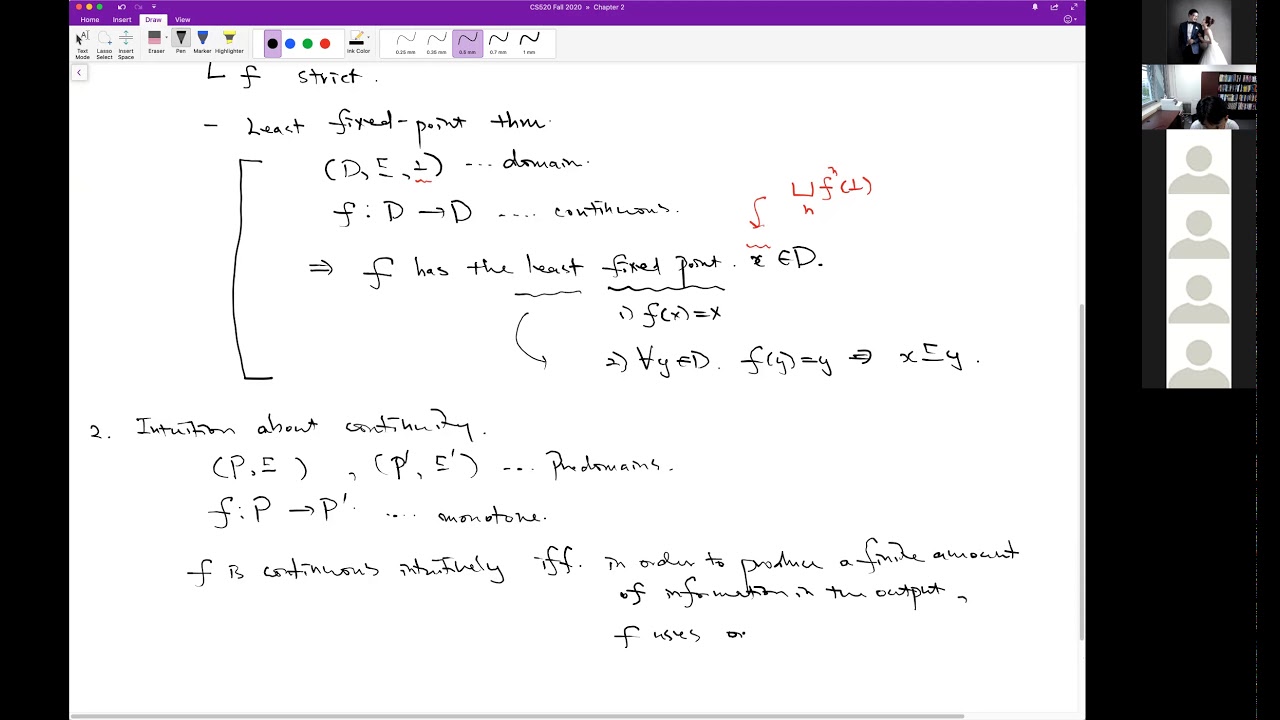 CS520 Fall 2020 » Chapter 2
Home Insert Draw View
Text Mode Lasso Select Insert Space Eraser Pen Marker Highlighter Ink Color 0.25 mm 0.35 mm 0.5 mm 0.7 mm 1 mm
f strict.
- Least fixed-point thm.
(D, ⊑, ⊥) ... domain.
⊔ fⁿ(⊥)
n
f : D → D .... continuous.
⇒ f has the least fixed point. x ∈ D.
1) f(x) = x
2) ∀y ∈ D. f(y) = y ⇒ x ⊑ y.
2. Intuition about continuity.
(P, ⊑), (P', ⊑') ... Predomains.
f : P → P' .... monotone.
f is continuous intuitively iff. in order to produce a finite amount
of information in the output,
f uses on